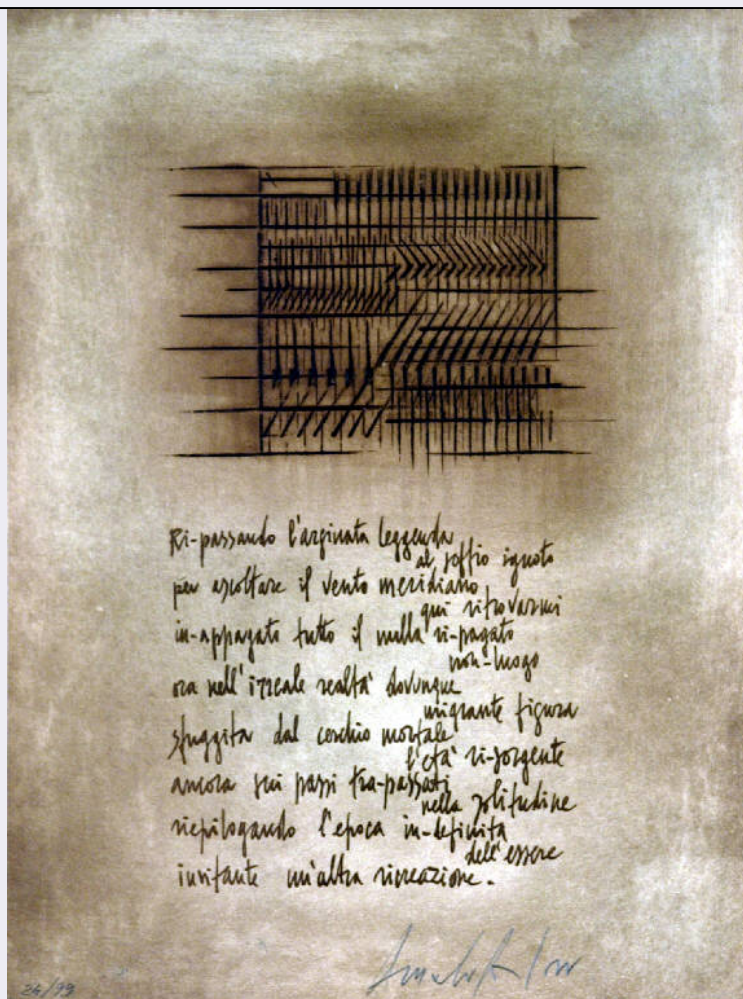 Ri-passando l'arginata leggenda
al soffio ignoto
per ascoltare il vento meridiano
qui ritrovarmi
in-appagato tutto il nulla ri-pagato
non-luogo
ora nell'irreale realtà dovunque
migrante figura
sfuggita dal cerchio mortale
l'età ri-sorgente
ancora sui passi tra-passati
nella solitudine
riepilogando l'epoca in-definita
dell'essere
invitante un'altra ricreazione.
24/99